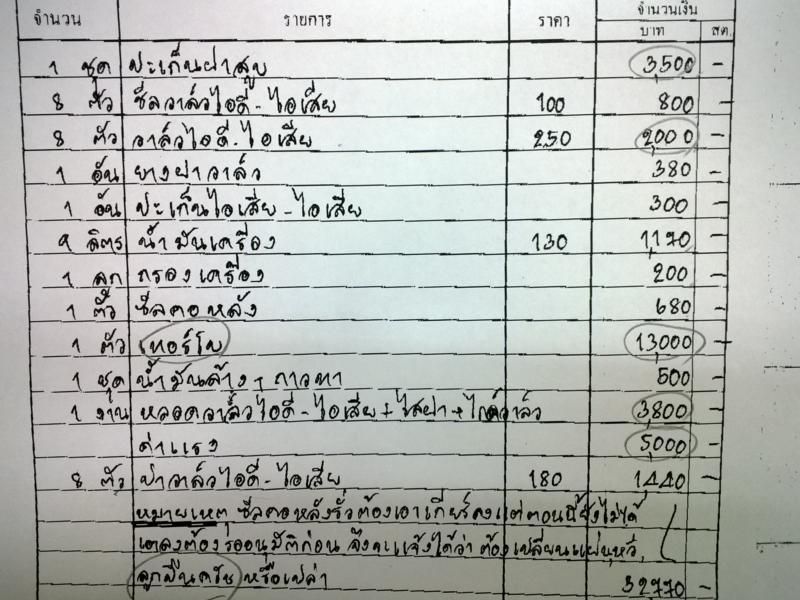 จำนวน รายการ ราคา จำนวนเงิน
บาท สต.
1 ชุด ปะเก็นฝาสูบ 3,500 -
8 ตัว ซีลวาล์วไอดี - ไอเสีย 100 800 -
8 ตัว วาล์วไอดี - ไอเสีย 250 2,000 -
1 อัน ยางฝาวาล์ว 380 -
1 อัน ปะเก็นไอเสีย - ไอเสีย 300 -
9 ลิตร น้ำมันเครื่อง 130 1,170 -
1 ลูก กรองเครื่อง 200 -
1 ตัว ซีลคอหลัง 680 -
1 ตัว เทอร์โบ 13,000 -
1 ชุด น้ำมันล้าง + กาวทา 500 -
1 งาน หลอดวาล์วไอดี - ไอเสีย + ไสฝา + ไกด์วาล์ว 3,800 -
ค่าแรง 5,000 -
8 ตัว บ่าวาล์วไอดี - ไอเสีย 180 1,440 -
หมายเหตุ ซีลคอหลังรั่วต้องเอาเกียร์ลงแต่ตอนนี้ยังไม่ได้
เอาลงต้องรออนุมัติก่อน จึงจะแจ้งได้ว่า ต้องเปลี่ยนแผ่นหวี,
ลูกปืนครัช หรือเปล่า 32770 -